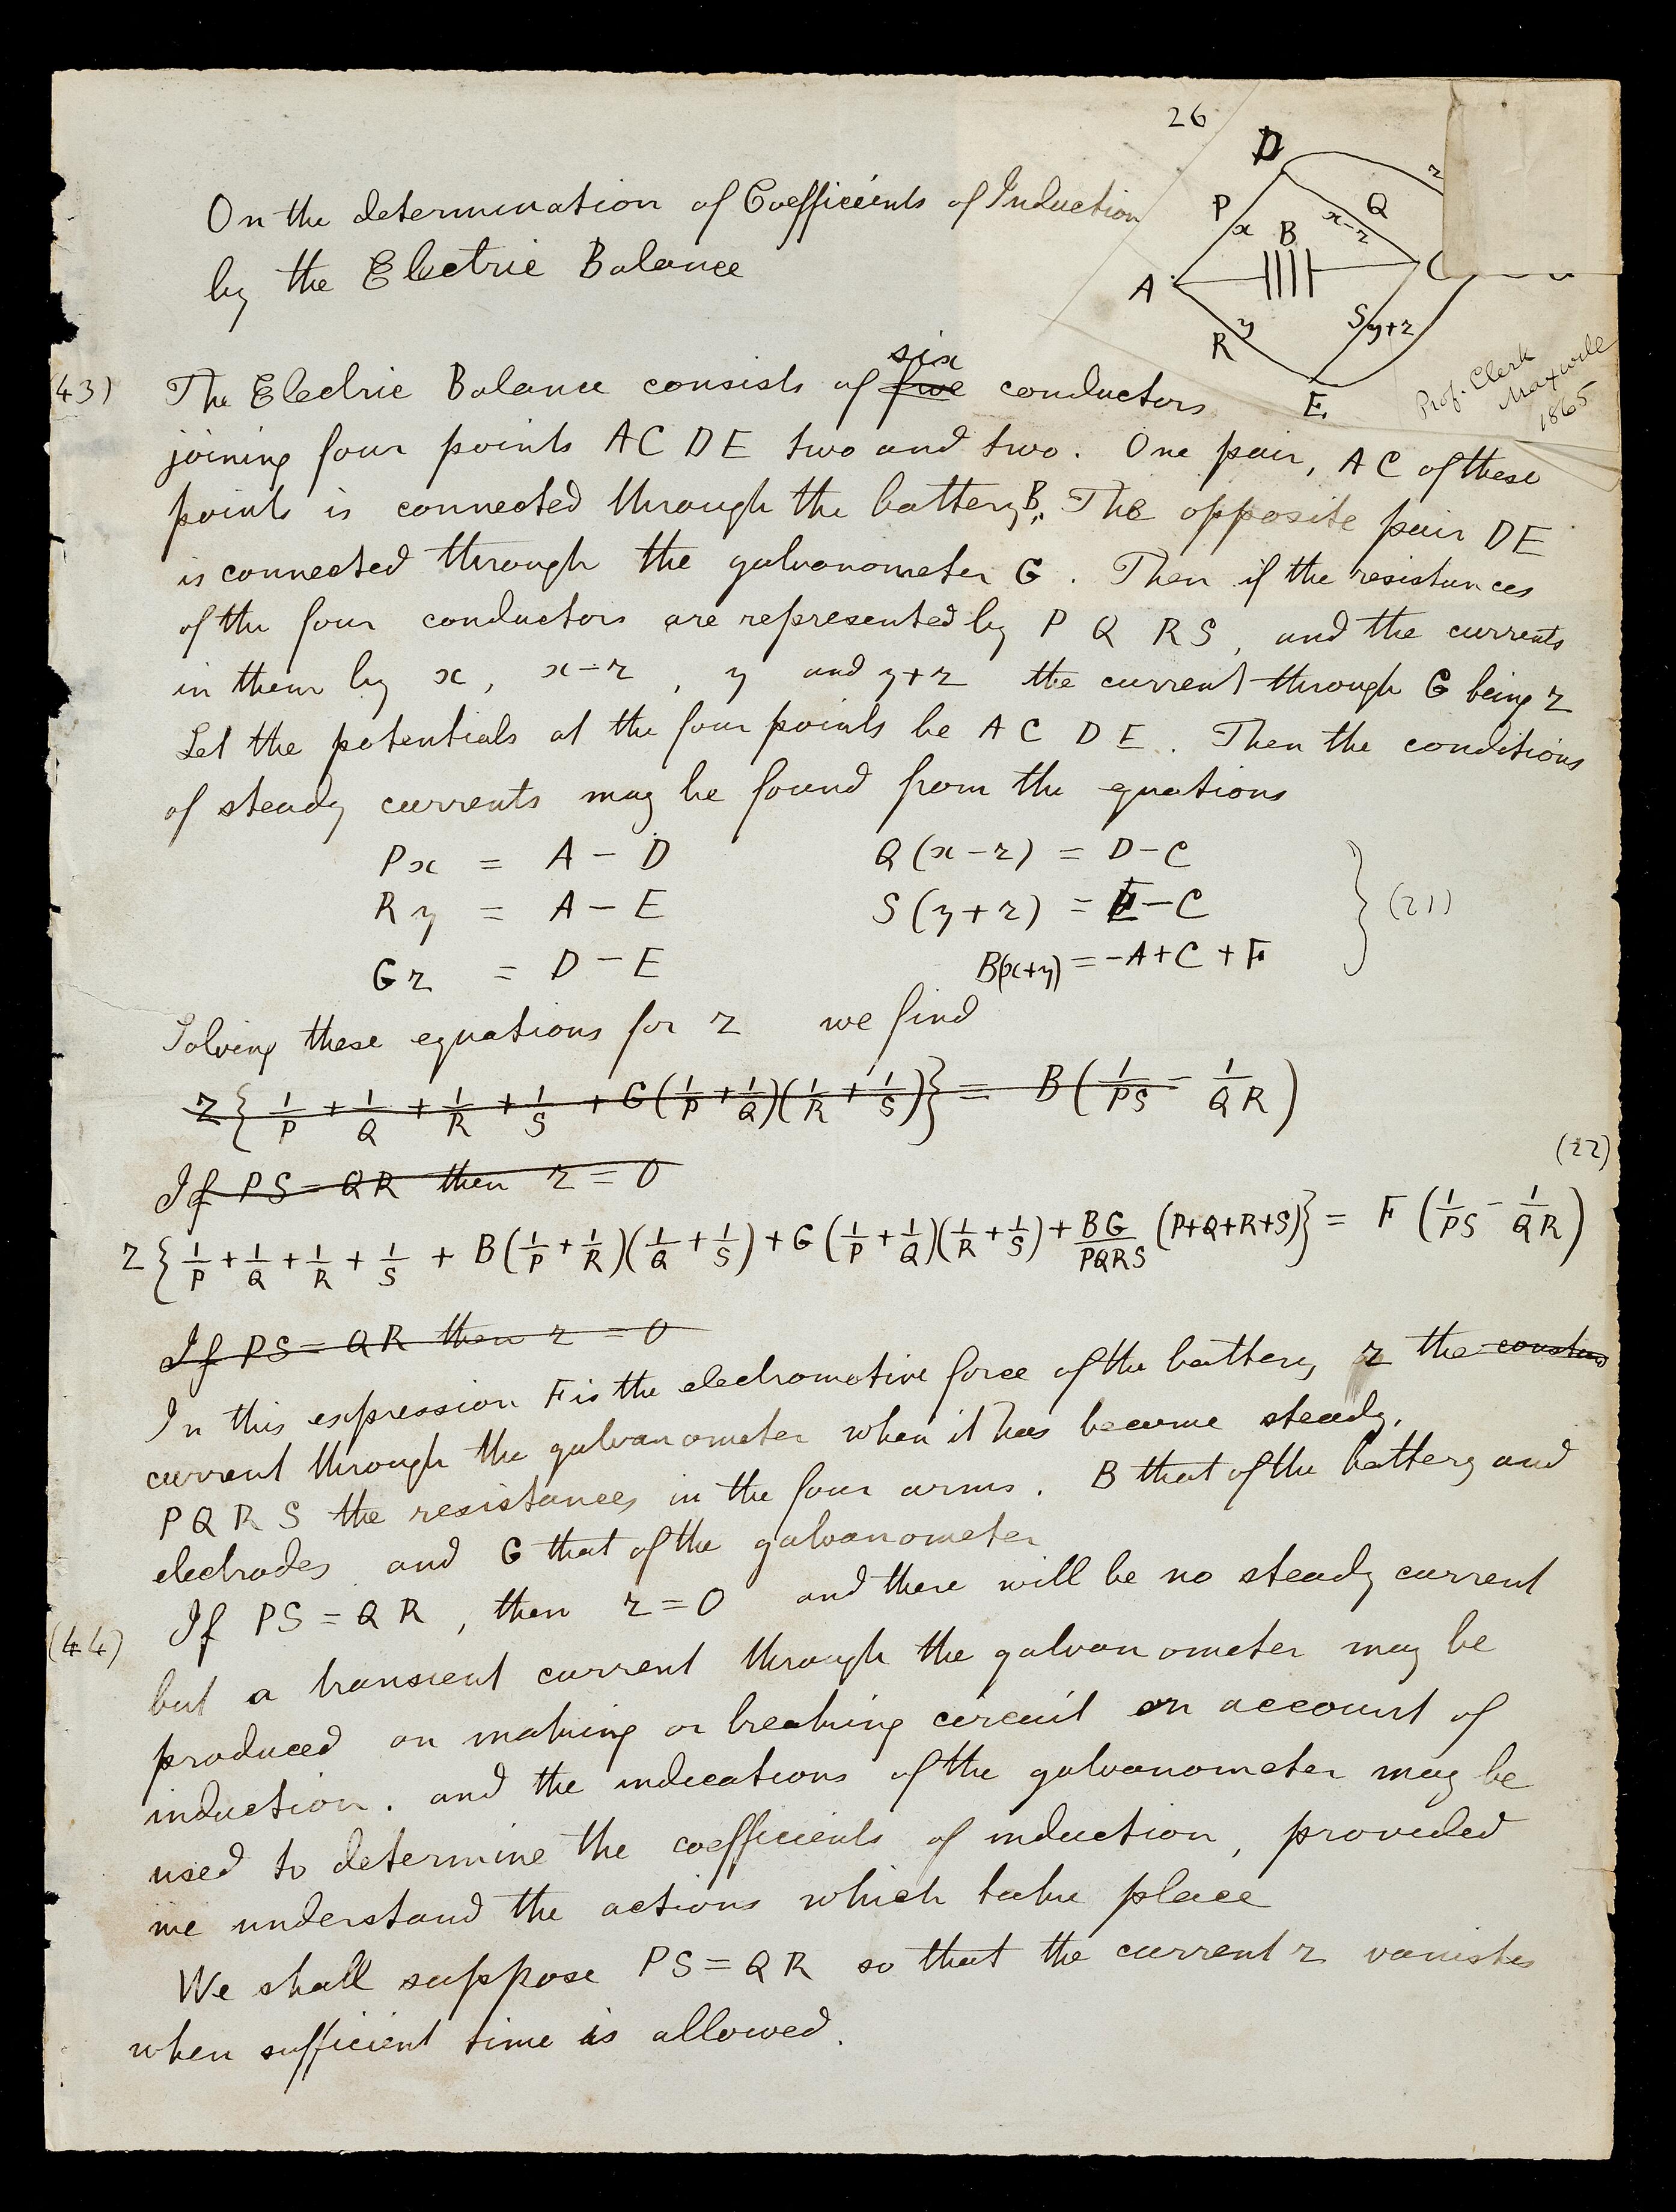 26
D
P
x
B
Q
x-z
z
A
C
R
y
S
y+z
E
Prof. Clerk
Maxwell
1865
On the determination of Coefficients of Induction
by the Electric Balance
(43) The Electric Balance consists of five six conductors
joining four points A C D E two and two. One pair, A C of these
points is connected through the battery B. The opposite pair D E
is connected through the galvanometer G. Then if the resistances
of the four conductors are represented by P Q R S, and the currents
in them by x, x-z, y and y+z the current through G being z
Let the potentials at the four points be A C D E. Then the conditions
of steady currents may be found from the equations
Px = A - D Q(x-z) = D-C
Ry = A - E S(y+z) = E-C } (21)
Gz = D - E B(x+y) = -A+C+F
Solving these equations for z we find
z{1/P + 1/Q + 1/R + 1/S + G(1/P + 1/Q)(1/R + 1/S)} = B(1/PS - 1/QR)
If PS = QR then z = 0
(22)
z{1/P + 1/Q + 1/R + 1/S + B(1/P + 1/R)(1/Q + 1/S) + G(1/P + 1/Q)(1/R + 1/S) + BG/PQRS (P+Q+R+S)} = F(1/PS - 1/QR)
If PS = QR then z = 0
In this expression F is the electromotive force of the battery z the
current through the galvanometer when it has become steady.
P Q R S the resistances in the four arms. B that of the battery and
electrodes and G that of the galvanometer
(44) If PS = QR, then z = 0 and there will be no steady current
but a transient current through the galvanometer may be
produced on making or breaking circuit on account of
induction. and the indications of the galvanometer may be
used to determine the coefficients of induction, provided
we understand the actions which take place
We shall suppose PS = QR so that the current z vanishes
when sufficient time is allowed.